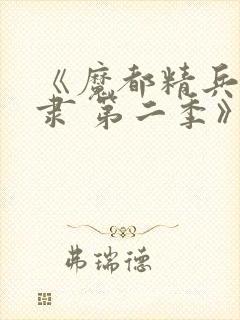 《魔都精兵
隶 第二季》
弗瑞德